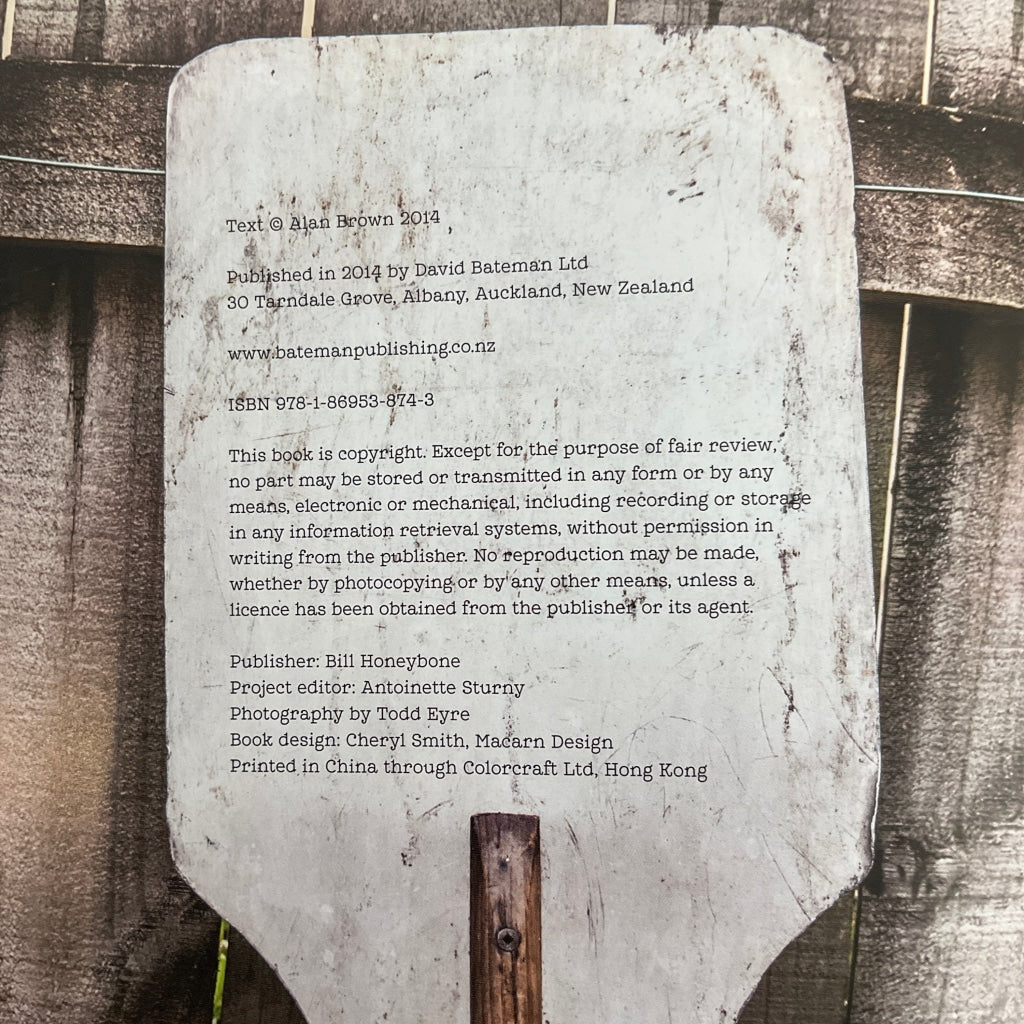 Text © Alan Brown 2014
Published in 2014 by David Bateman Ltd
30 Tarndale Grove, Albany, Auckland, New Zealand
www.batemanpublishing.co.nz
ISBN 978-1-86953-874-3
This book is copyright. Except for the purpose of fair review,
no part may be stored or transmitted in any form or by any
means, electronic or mechanical, including recording or storage
in any information retrieval systems, without permission in
writing from the publisher. No reproduction may be made,
whether by photocopying or by any other means, unless a
licence has been obtained from the publisher or its agent.
Publisher: Bill Honeybone
Project editor: Antoinette Sturny
Photography by Todd Eyre
Book design: Cheryl Smith, Macarn Design
Printed in China through Colorcraft Ltd, Hong Kong